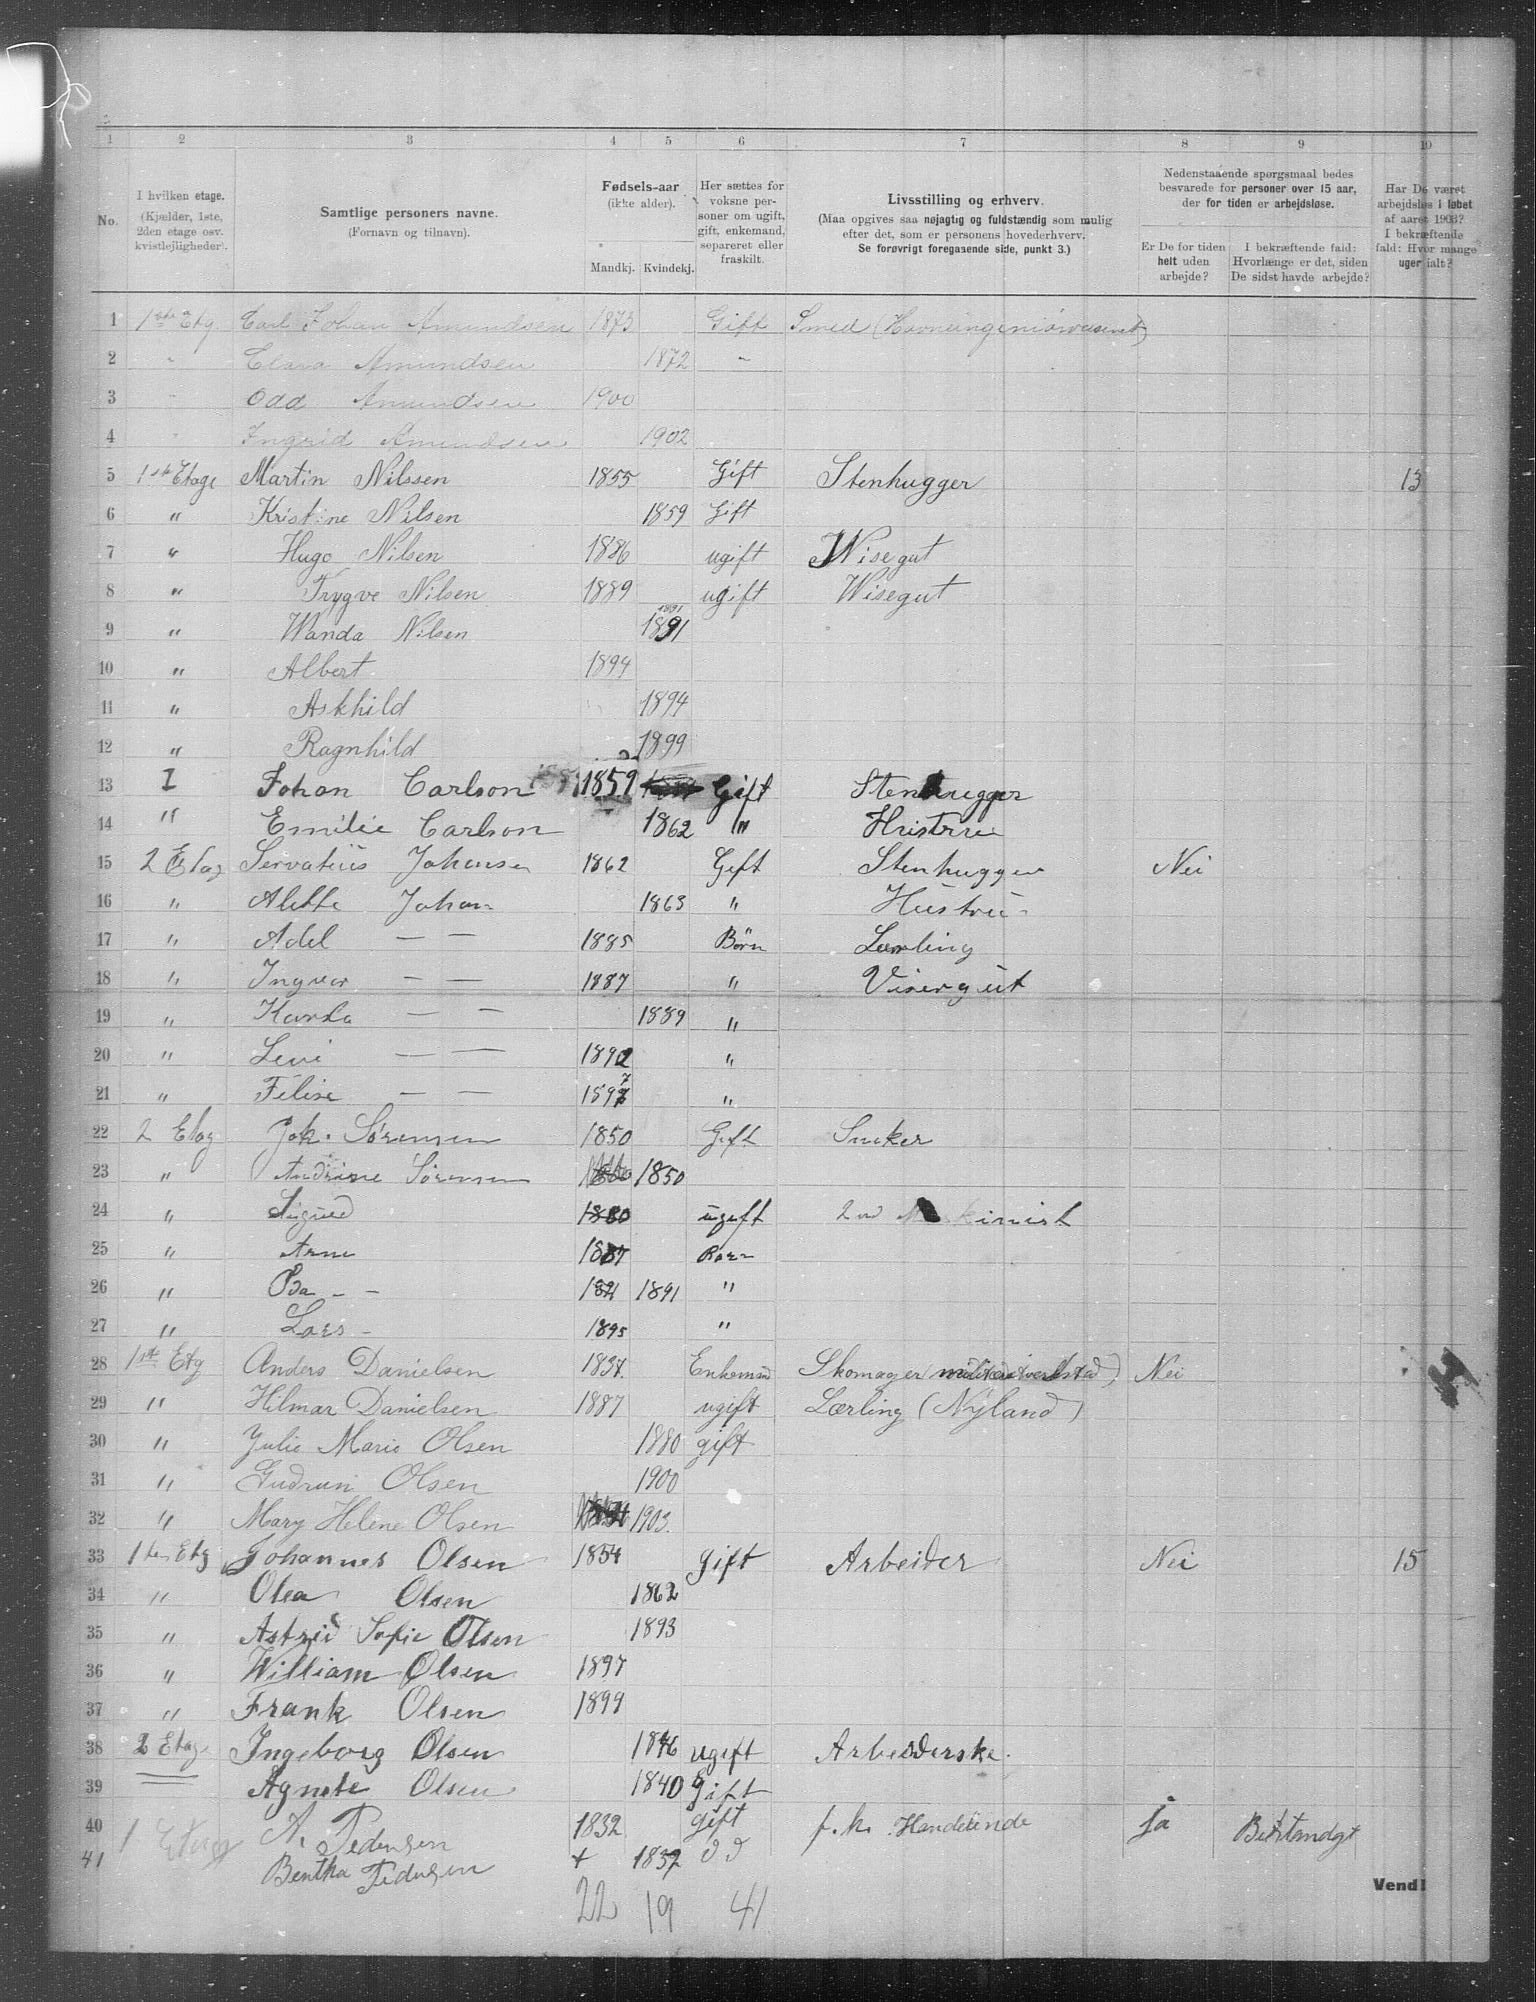 1 2 3 4 5 6 7 8 9 10
No.
I hvilken etage. (Kjælder, 1ste, 2den etage osv. kvistlejligheder).
Samtlige personers navne. (Fornavn og tilnavn).
Fødsels-aar (ikke alder).
Mandkj. Kvindekj.
Her sættes for voksne personer om ugift, gift, enkemand, separeret eller fraskilt.
Livsstilling og erhverv.
(Maa opgives saa nøjagtig og fuldstændig som mulig efter det, som er personens hovederhverv. Se forøvrigt foregaaende side, punkt 3.)
Nedenstaaende spørgsmaal bedes besvarede for personer over 15 aar, der for tiden er arbejdsløse.
Er De for tiden helt uden arbejde?
I bekræftende fald: Hvorlænge er det, siden De sidst havde arbejde?
Har De været arbejdsløs i løbet af aaret 1903? I bekræftende fald: Hvor mange uger ialt?
1 1ste Etg. Carl Johan Amundsen 1873 Gift Smed (Havneingeniørvæsenet)
2 " Clara Amundsen 1872 "
3 " Odd Amundsen 1900
4 " Ingrid Amundsen 1902
5 1ste Etage Martin Nilssen 1855 Gift Stenhugger 13
6 " Kristine Nilsen 1859 Gift
7 " Hugo Nilsen 1886 ugift Wisegut
8 " Trygve Nilsen 1889 ugift Wisegut
9 " Wanda Nilsen 1891 1891
10 " Albert 1894
11 " Askhild 1894
12 " Ragnhild 1899
13 I Johan Carlson 1859 Gift Stenhugger
14 " Emilie Carlson 1862 " Hustrue
15 2 Etag Servatius Johansen 1862 Gift Stenhugger Nei
16 " Alette Johan 1863 " Hustru
17 " Adel — — 1885 Børn Lærling
18 " Ingvar — — 1887 " Visergut
19 " Karla — — 1889 "
20 " Levi — — 1892 "
21 " Felise — — 1897 "
22 2 Etag Joh. Sørensen 1850 Gift Sneker
23 " Andrine Sørensen 1850
24 " Sigurd 1880 ugift 2nd Maskinist
25 " Arne 1887 Børn
26 " Ida - - 1891 "
27 " Lars - 1895 "
28 1st Etg Anders Danielsen 1837. Enkemand Skomager (militærtverksted) Nei
29 " Hilmar Danielsen 1887 ugift Lærling (Nyland)
30 " Julie Marie Olsen 1880 gift
31 " Gudrun Olsen 1900
32 " Mary Helene Olsen 1903.
33 1ten Etg Johannes Olsen 1854 gift Arbeider Nei 15
34 " Olea Olsen 1862
35 " Astrid Sofie Olsen 1893
36 " William Olsen 1897
37 " Frank Olsen 1899
38 2 Etage Ingeborg Olsen 1876 ugift Arbeiderske.
39 Agnete Olsen 1840 Gift
40 1 Etage A. Pedersen 1832 gift f. h. Handelende ja
41 Bentha Pedersen + 1837 dd
22 19 41
Vend!